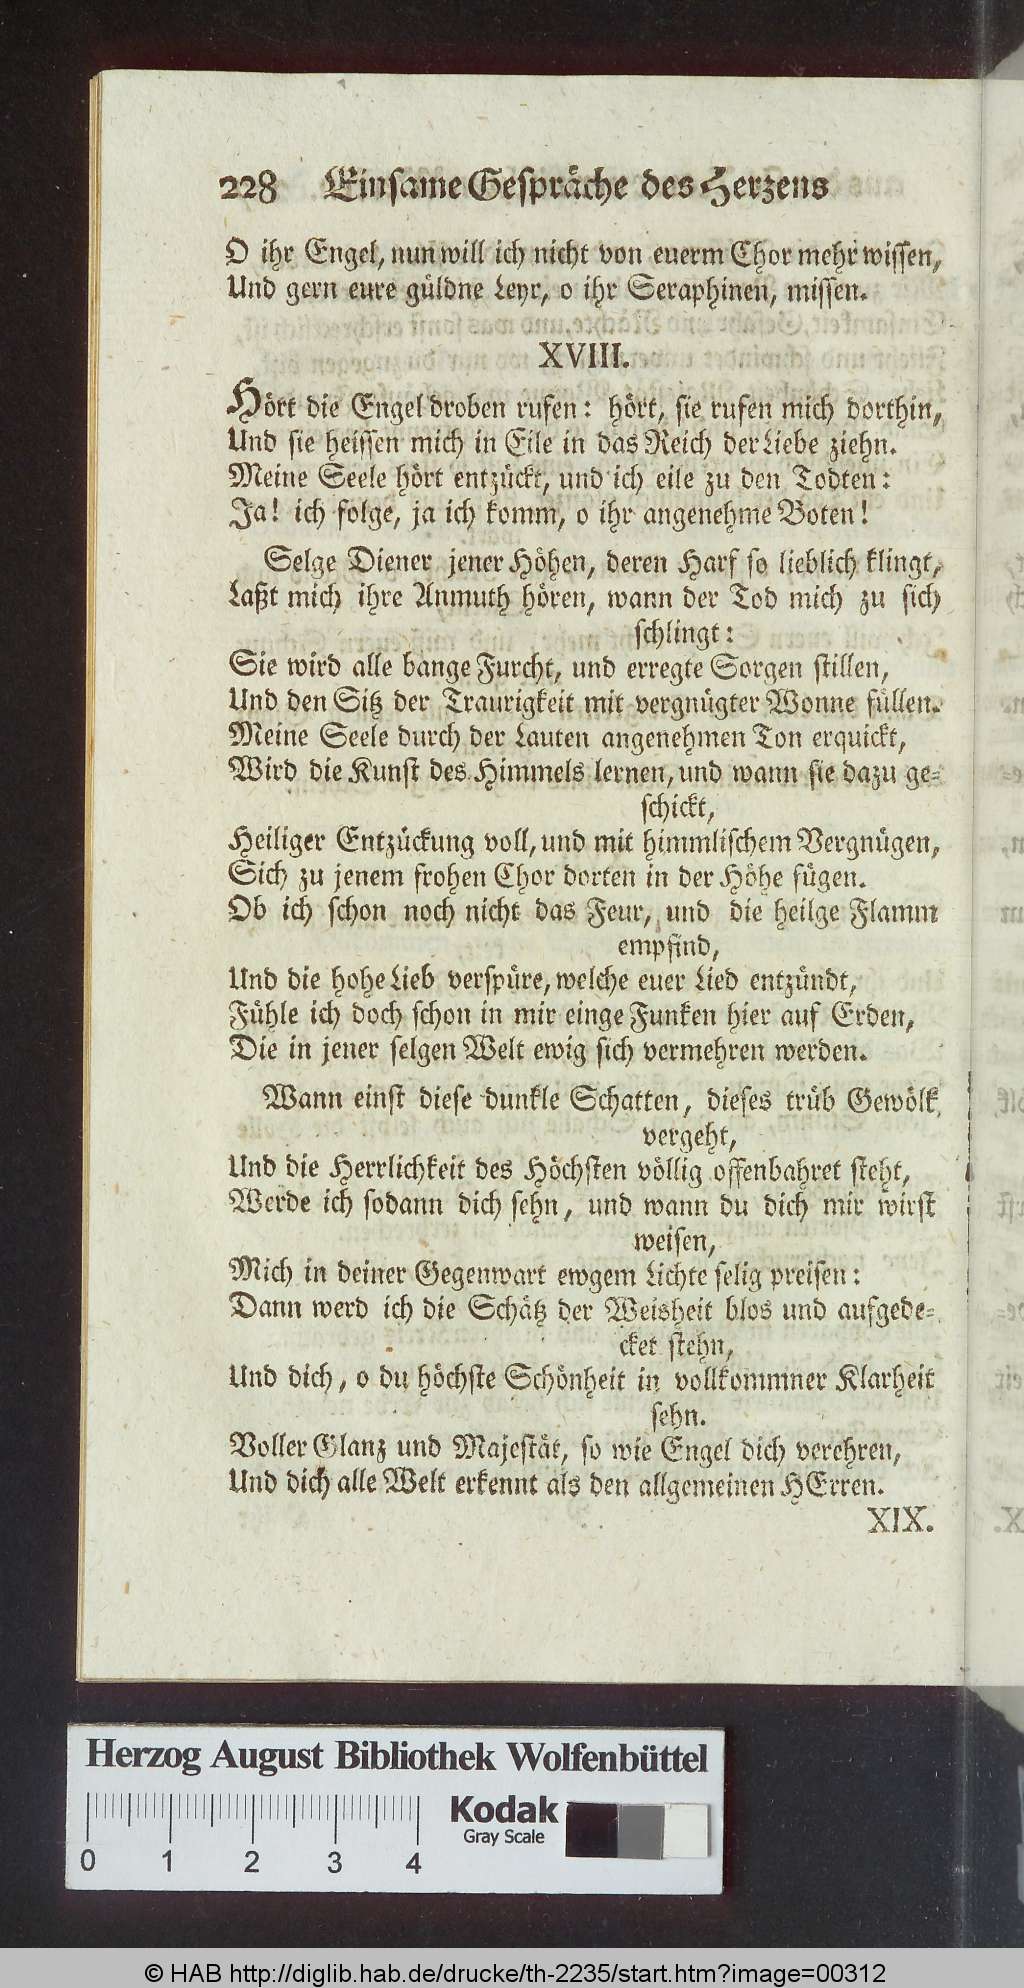 228 Einsame Gespräche des Herzens
O ihr Engel, nun will ich nicht von euerm Chor mehr wissen,
Und gern eure güldne Leyr, o ihr Seraphinen, missen.
XVIII.
Hört die Engel droben rufen: hört, sie rufen mich dorthin,
Und sie heissen mich in Eile in das Reich der Liebe ziehn.
Meine Seele hört entzückt, und ich eile zu den Todten:
Ja! ich folge, ja ich komm, o ihr angenehme Boten!
Selge Diener jener Höhen, deren Harf so lieblich klingt,
Laßt mich ihre Anmuth hören, wann der Tod mich zu sich
schlingt:
Sie wird alle bange Furcht, und erregte Sorgen stillen,
Und den Sitz der Traurigkeit mit vergnügter Wonne füllen.
Meine Seele durch der Lauten angenehmen Ton erquickt,
Wird die Kunst des Himmels lernen, und wann sie dazu ge-
schickt,
Heiliger Entzückung voll, und mit himmlischem Vergnügen,
Sich zu jenem frohen Chor dorten in der Höhe fügen.
Ob ich schon noch nicht das Feur, und die heilge Flamm
empfind,
Und die hohe Lieb verspüre, welche euer Lied entzündt,
Fühle ich doch schon in mir einge Funken hier auf Erden,
Die in jener selgen Welt ewig sich vermehren werden.
Wann einst diese dunkle Schatten, dieses trüb Gewölk
vergeht,
Und die Herrlichkeit des Höchsten völlig offenbahret steht,
Werde ich sodann dich sehn, und wann du dich mir wirst
weisen,
Mich in deiner Gegenwart ewgem Lichte selig preisen:
Dann werd ich die Schätz der Weisheit blos und aufgede-
cket stehn,
Und dich, o du höchste Schönheit in vollkommner Klarheit
sehn.
Voller Glanz und Majestät, so wie Engel dich verehren,
Und dich alle Welt erkennt als den allgemeinen HErren.
XIX.
Herzog August Bibliothek Wolfenbüttel
Kodak
Gray Scale
0 1 2 3 4
© HAB http://diglib.hab.de/drucke/th-2235/start.htm?image=00312